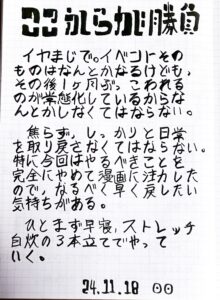 ここからが勝負
イヤまじで。イベントその
ものはなんとかなるけども、
その後1ヶ月ぶっこわれる
のが常態化しているからな
んとかしなくてはならない。
焦らず、しっかりと日常
を取り戻さなくてはならない。
特に今回はやるべきことを
完全にやめて漫画に注力した
ので、なるべく早く戻したい
気持ちがある。
ひとまず早寝、ストレッチ
自炊の3本立てでやって
いく。
24.11.18